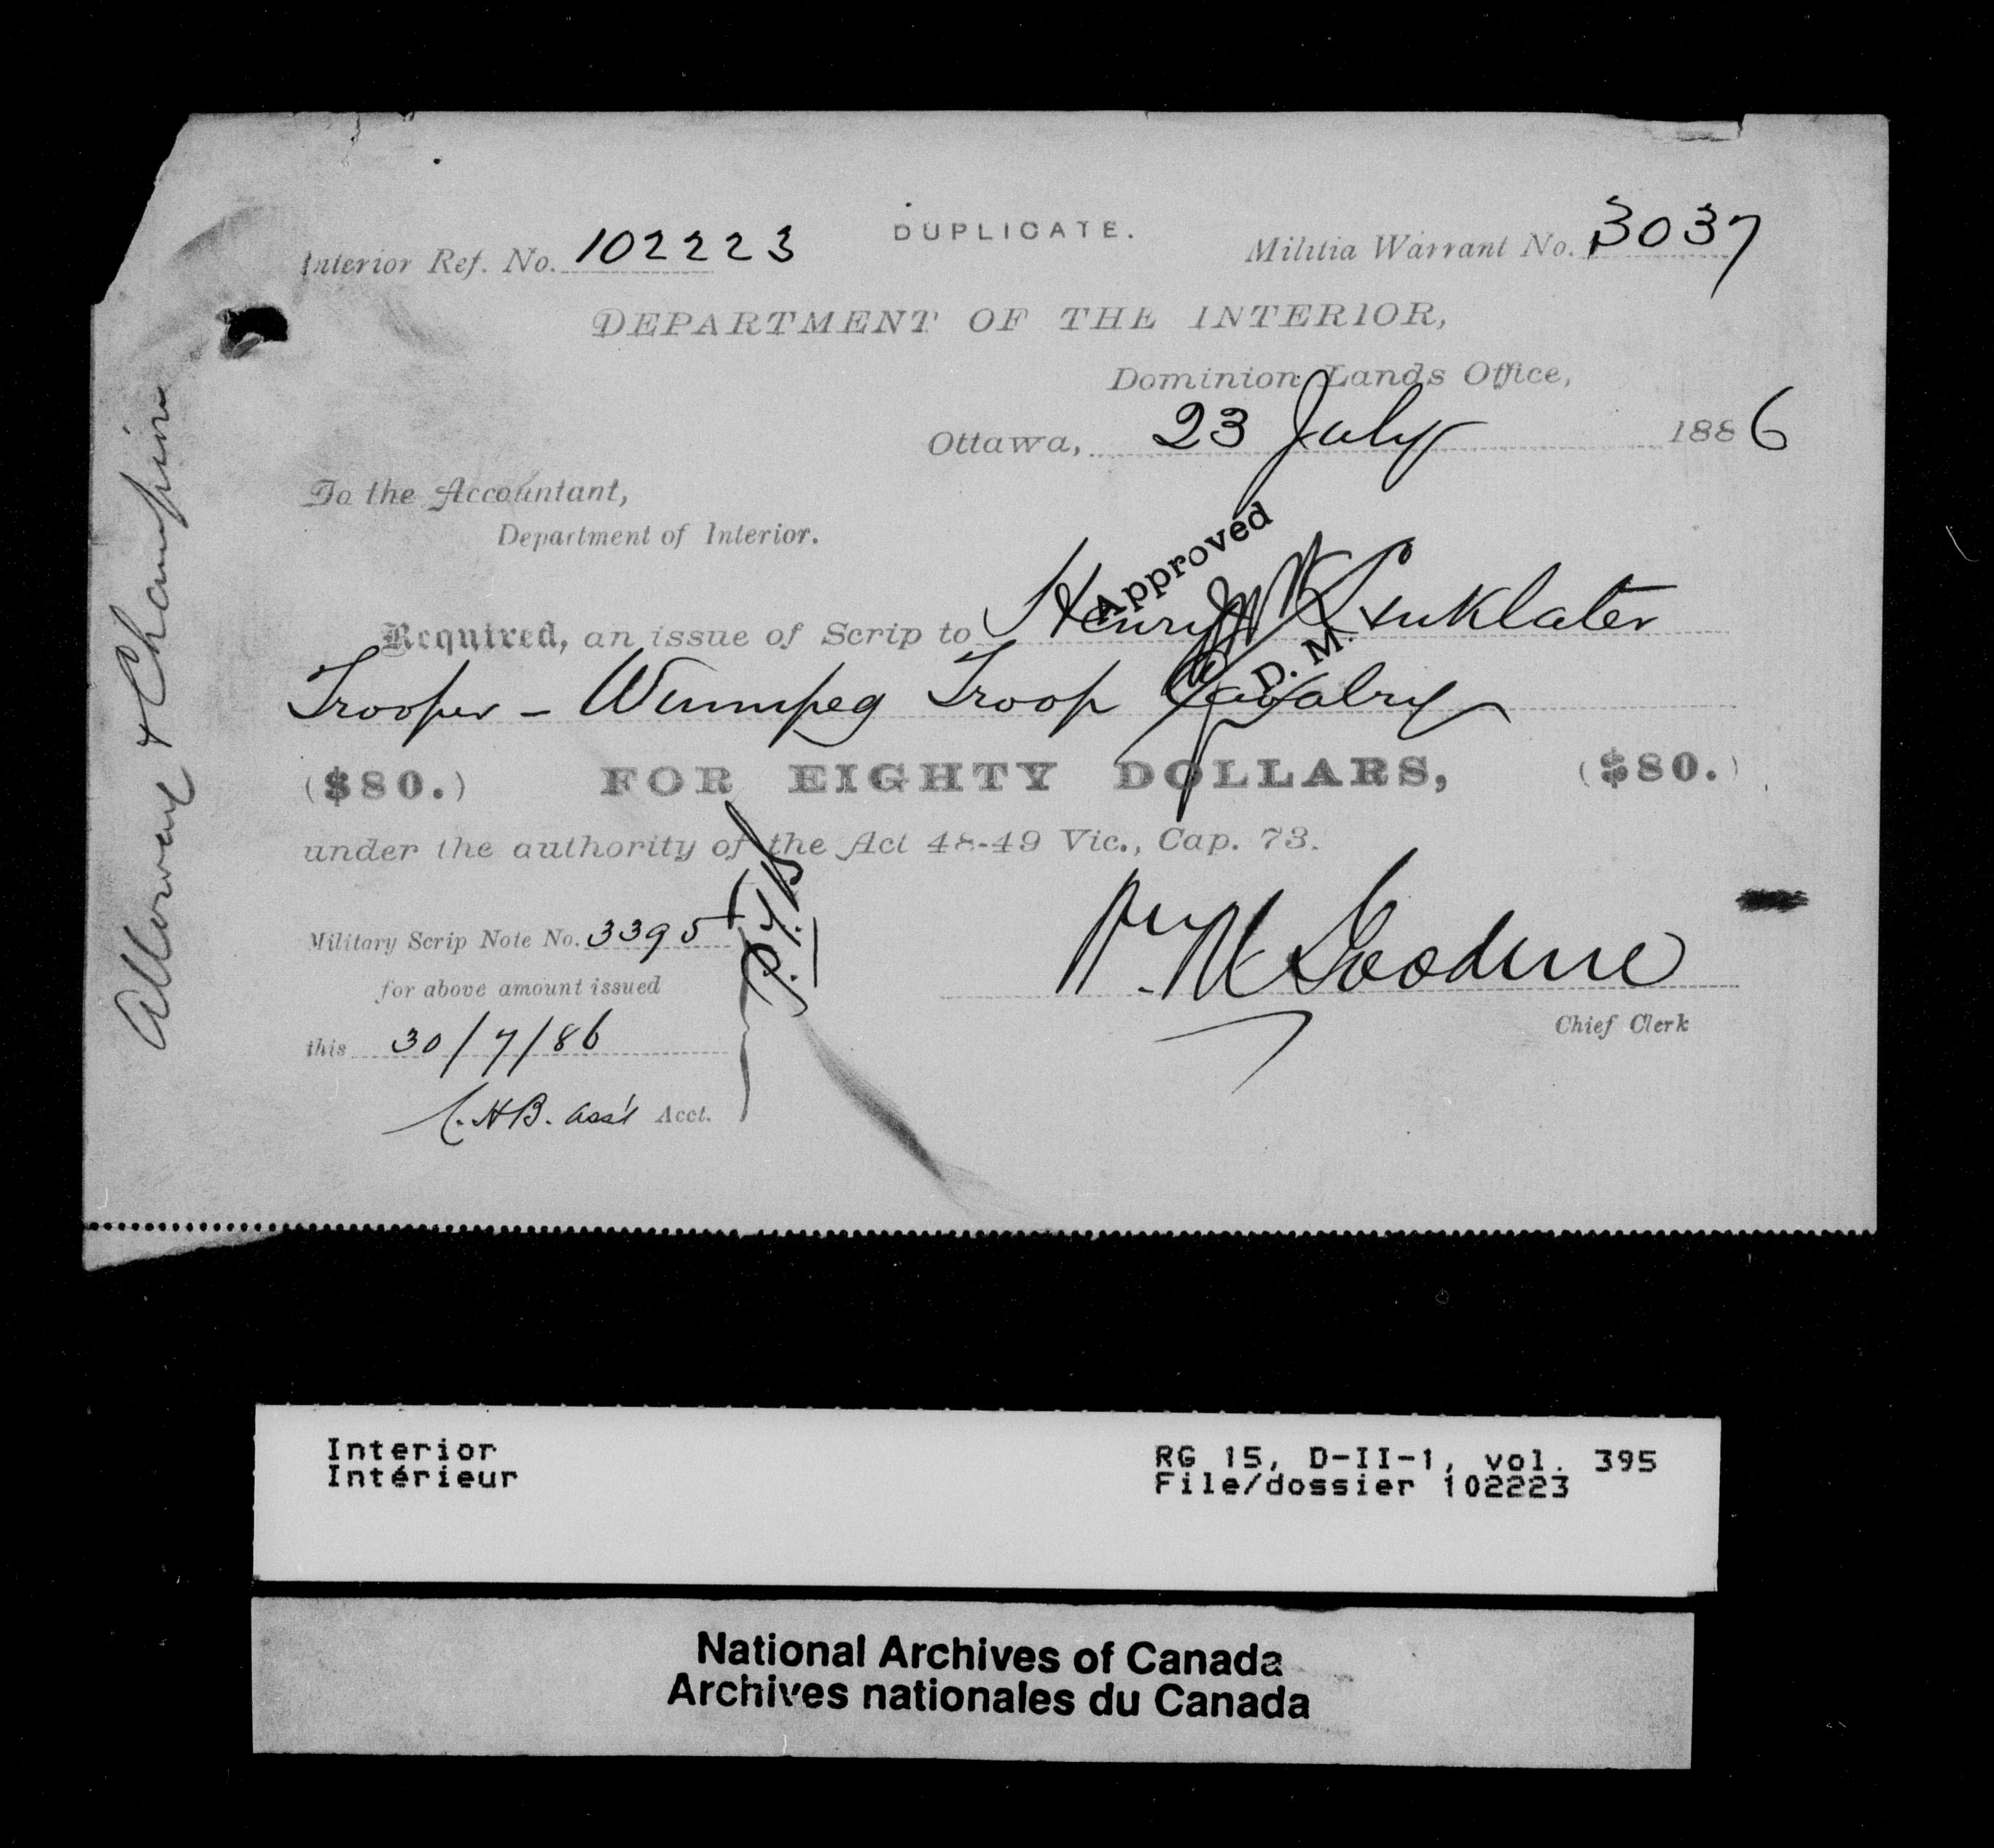 DUPLICATE.
Interior Ref. No. 102223
Militia Warrant No. 3037
DEPARTMENT OF THE INTERIOR,
Dominion Lands Office,
Ottawa, 23 July 1886
To the Accountant,
Department of Interior.
Approved
Required, an issue of Scrip to Henry Linklater
D. M.
Trooper - Winnipeg Troop Cavalry
($80.) FOR EIGHTY DOLLARS, ($80.)
under the authority of the Act 48-49 Vic., Cap. 73.
Military Scrip Note No. 3395
for above amount issued
this 30/7/86
C.H.B. Ass't Acct.
Wm M Goodeve
Chief Clerk
Alloway & Champion
Interior
Intérieur
RG 15, D-II-1, vol. 395
File/dossier 102223
National Archives of Canada
Archives nationales du Canada